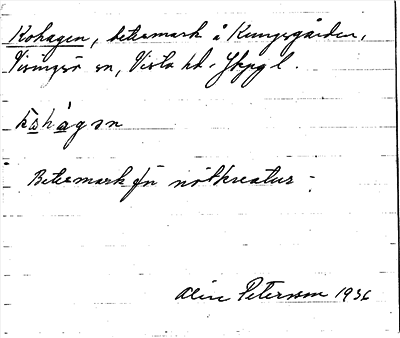 Kohagen, betesmark å Kungsgården,
Visingsö sn, Vista hd. Jkpg l.
kohagen
Betesmark för nötkreatur.
Petersson 1936